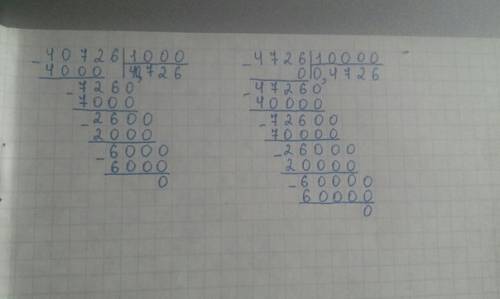 - 40726 | 1000
4000 | 40,726
- 7260
7000
- 2600
2000
- 6000
6000
0
- 4726 | 10000
0 | 0,4726
- 47260
40000
- 72600
70000
- 26000
20000
- 60000
60000
0